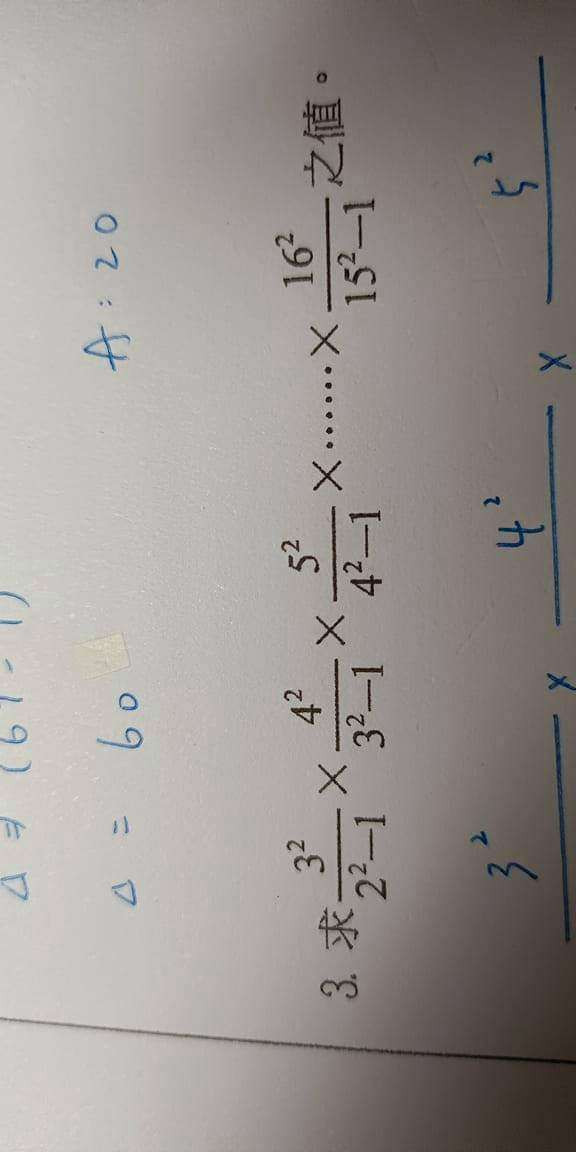 Δ = 60
A: 20
3. 求 3²/(2²−1) × 4²/(3²−1) × 5²/(4²−1) ×……× 16²/(15²−1) 之值。
3² × 4² × 5²